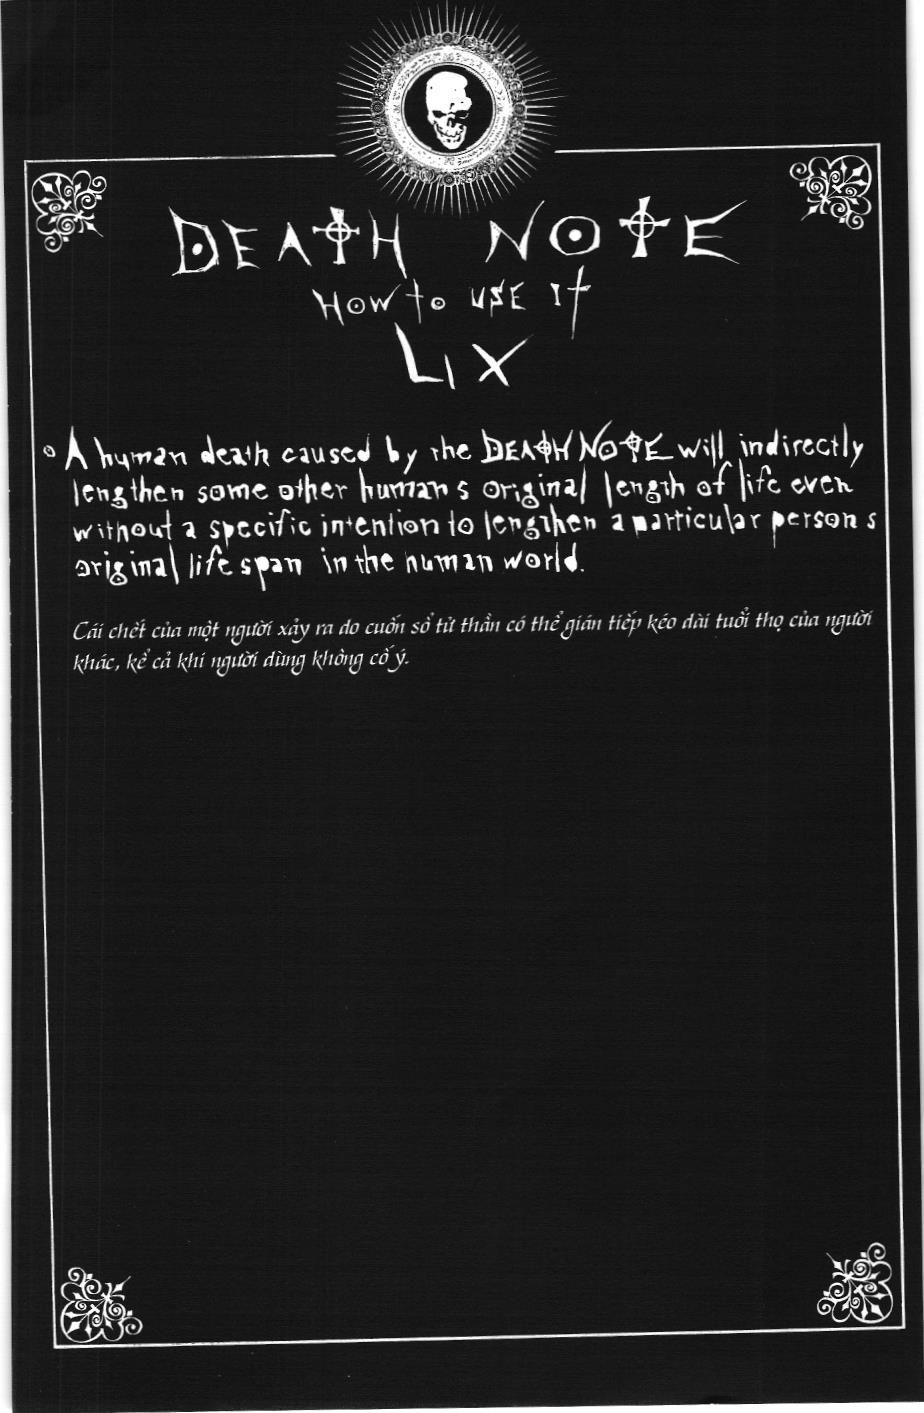 DEATH NOTE
HOW to USE It
LIX
A human death caused by the DEATH NOTE will indirectly
lengthen some other human s original length of life even
without a specific intention to lengthen a particular person s
original life span in the human world.
Cái chết của một người xảy ra do cuốn sổ tử thần có thể gián tiếp kéo dài tuổi thọ của người
khác, kể cả khi người dùng không cố ý.